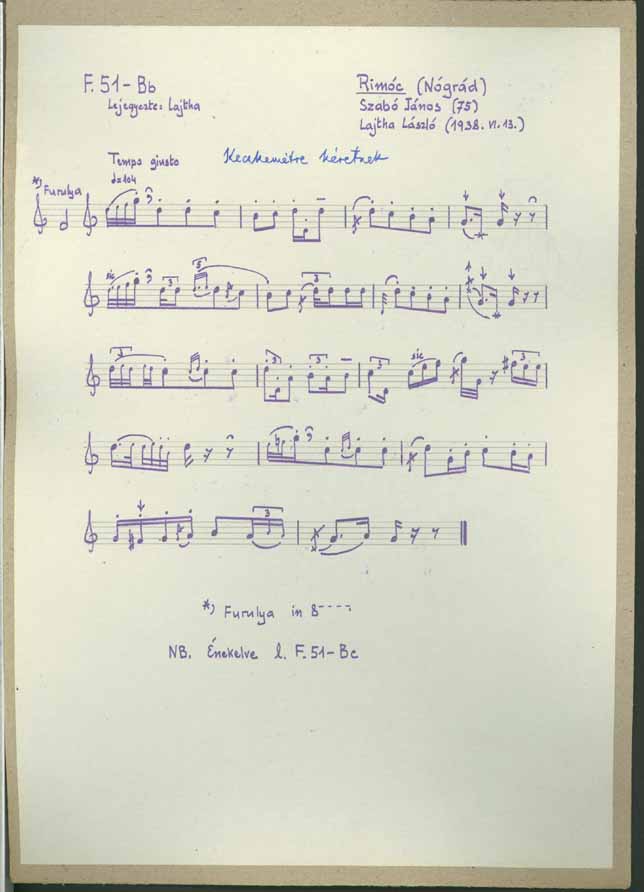 F. 51 - Bb
Lejegyezte: Lajtha
Rimóc (Nógrád)
Szabó János (75)
Lajtha László (1938. VI. 13.)
Tempo giusto
Kecskemétre kéretnek
♩=104
*) Furulya
sic
3
5
3
3
3
3
3
sic
3
3
*) Furulya in 8----
NB. Énekelve l. F. 51 - Bc